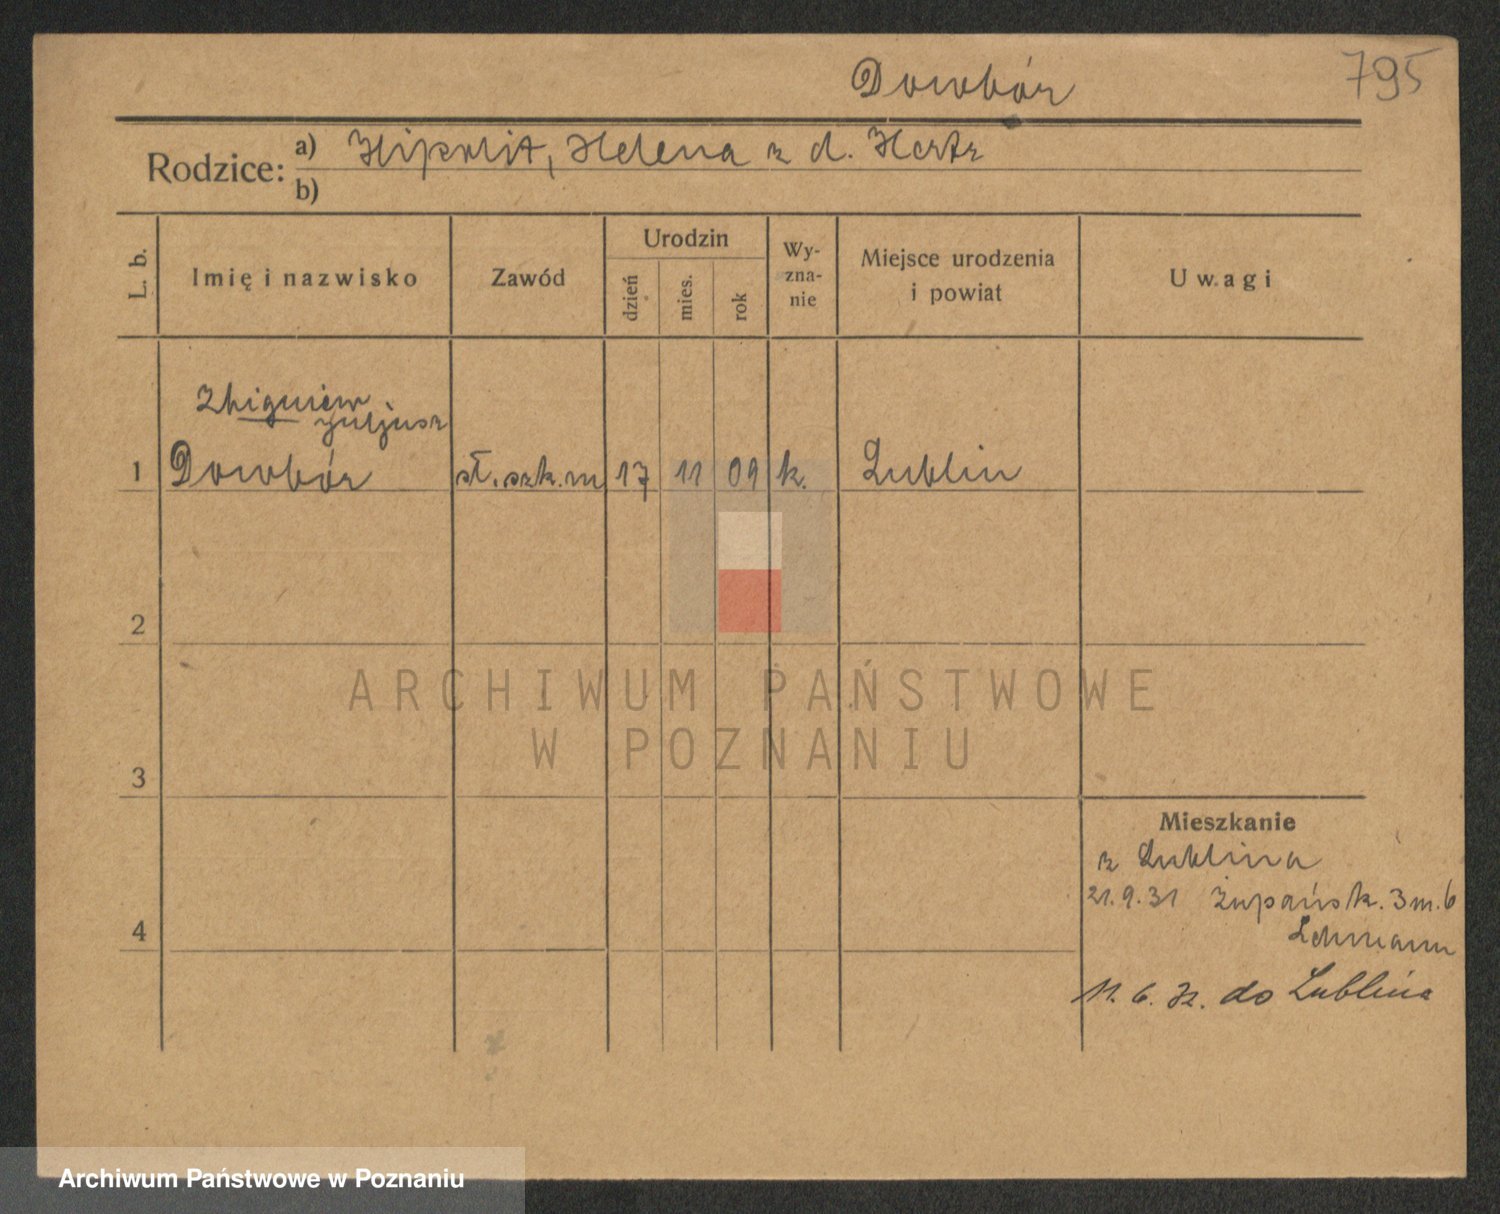 Dowbór
795
Rodzice: a) Hipolit, Helena z d. Hertz
b)
L. b.
Imię i nazwisko
Zawód
Urodzin
dzień
mies.
rok
Wy-
zna-
nie
Miejsce urodzenia
i powiat
Uwagi
Zbigniew
Juljusz
1 Dowbór sł. szk. m 17 11 09 k. Lublin
2
3
4
ARCHIWUM PAŃSTWOWE
W POZNANIU
Mieszkanie
z Lublina
21.9.31 Żupańsk. 3 m. 6
Lehmann
11. 6. 32. do Lublina
Archiwum Państwowe w Poznaniu